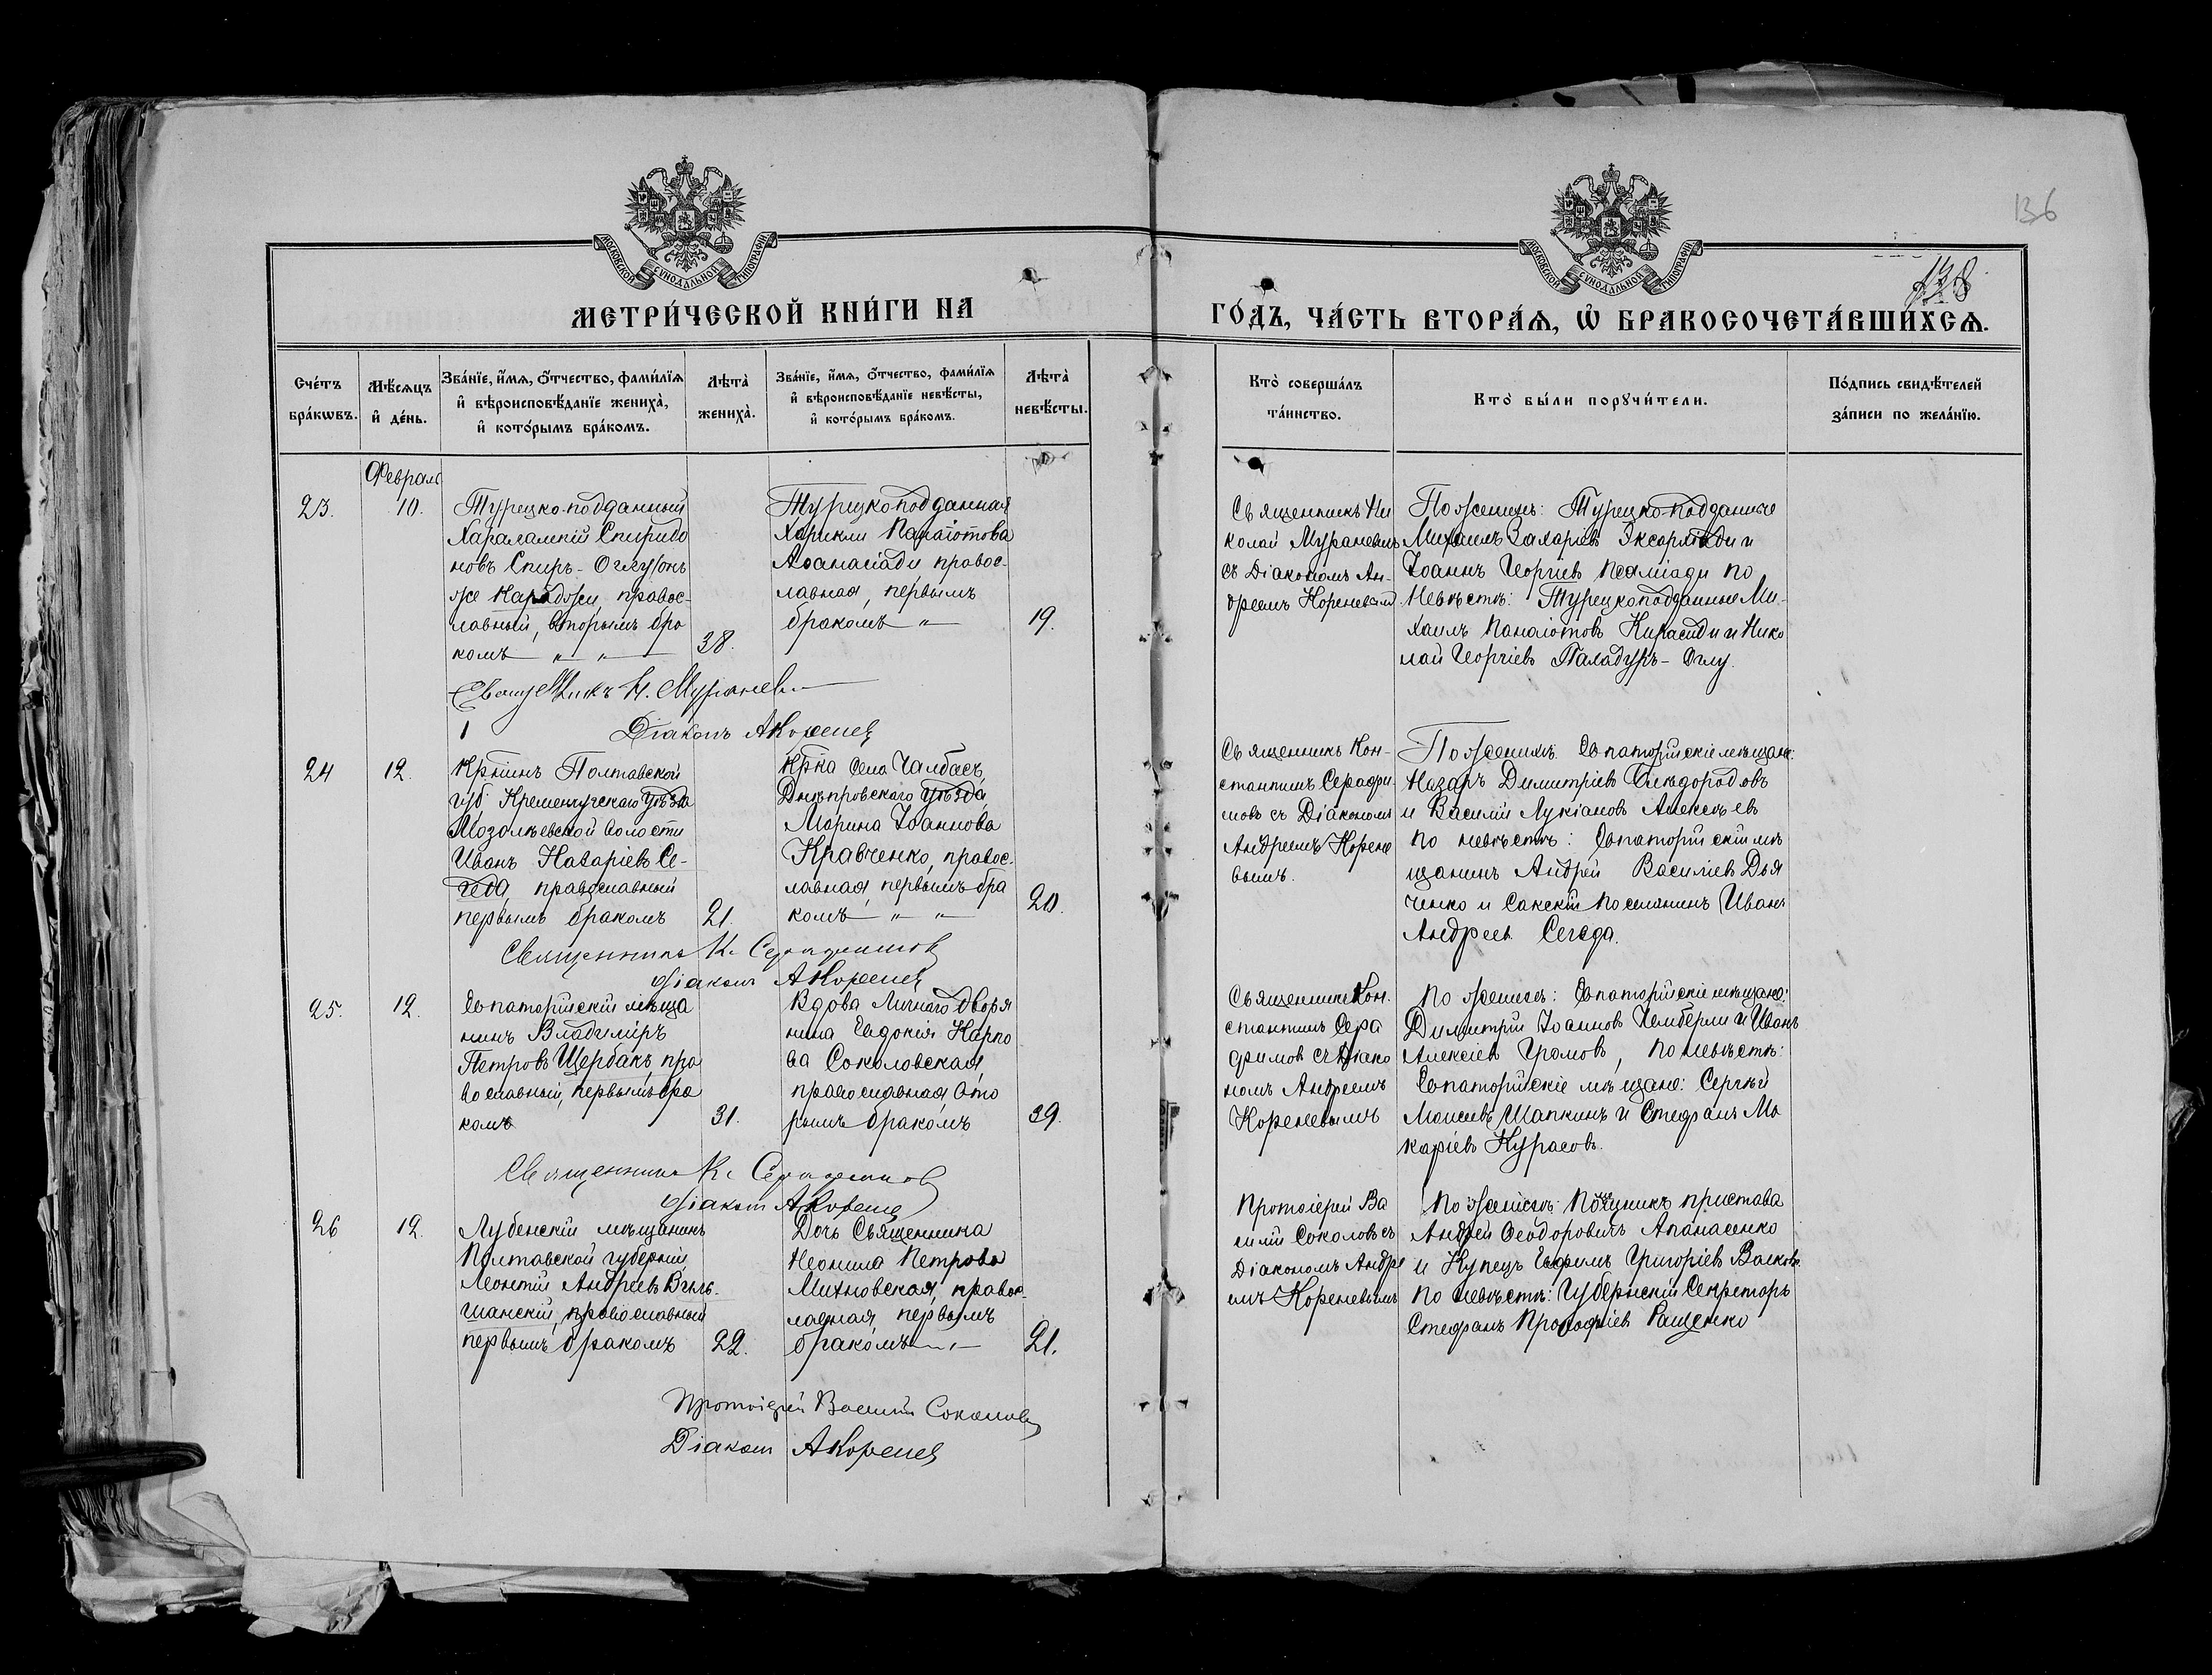 136
138
МОСКОВСКОЙ СѴНОДАЛЬНОЙ ТИПОГРАФІИ
МОСКОВСКОЙ СѴНОДАЛЬНОЙ ТИПОГРАФІИ
МЕТРИ́ЧЕСКОЙ КНИ́ГИ НА
ГО́ДЪ, ЧА́СТЬ ВТОРА́Ѧ, Ѽ БРАКОСОЧЕТА́ВШИХСѦ.
Сче́тъ
бра́кѡвъ.
Мѣ́сѧцъ
и҆ де́нь.
Зва́нїе, и҆́мѧ, ѻ҆́тчество, фами́лїѧ
и҆ вѣроисповѣ́данїе жениха̀,
и҆ кото́рымъ бра́комъ.
Лѣта̀
жениха̀.
Зва́нїе, и҆́мѧ, ѻ҆́тчество, фами́лїѧ
и҆ вѣроисповѣ́данїе невѣ́сты,
и҆ кото́рымъ бра́комъ.
Лѣта̀
невѣ́сты.
Кто̀ соверша́лъ
та́инство.
Кто̀ бы́ли порꙋчи́тели.
По́дпись свидѣ́телей
за́писи по жела́нїю.
Февраль
23.
10.
Турецко-подданный
Харалампій Спиридо
новъ Спиръ-Оглу онъ
же Карабаджи, правос-
лавный, вторымъ бра
комъ — " — " —
38.
Турецкоподданная
Харикли Панаіотова
Аѳанасіади правос-
лавная, первымъ
бракомъ — " —
19.
Священникъ Ни
колай Мураневичъ
съ Діакономъ Ан-
дреемъ Кореневым
По женихѣ: Турецко-подданные
Михаилъ Захаріевъ и
Іоаннъ Георгіевъ по
Невѣстѣ: Турецкоподданные Ми-
хаилъ Панаіотовъ и Нико
лай Георгіевъ Паладуръ-Оглу.
Священникъ Н. Муранев
Діаконъ А Коренев
24
12.
Кр҃нинъ Полтавской
губ Кременчугскаго уѣзда
волости
Иванъ Назаріевъ Се-
геда, православный
первымъ бракомъ
21.
Кр҃ка села Чалбасъ,
Днѣпровскаго уѣзда,
Марина Іоаннова
Кравченко, правос-
лавная, первымъ бра
комъ — " — "
20.
Священникъ Кон-
стантинъ Серафи-
мовъ съ Діакономъ
Андреемъ Корене
вымъ.
По женихѣ: Евпаторійскіе мѣщане:
Назаръ Димитріевъ Бѣлгородовъ
и Василій Лукіановъ Алексѣевъ
по невѣстѣ: Евпаторійскій мѣ
щанинъ Андрей Василіевъ Дья
ченко и Сакскій поселянинъ Иванъ
Андреев Сегеда.
Священникъ К. Серафимов
Діакон А Коренев
25.
12.
Евпаторійскій мѣща
нинъ Владиміръ
Петровъ Щербакъ, пра
вославный, первымъ бра
комъ
31.
Вдова Личнаго Дворя
нина Евдокія Карпо
ва Соколовская,
православная, вто
рымъ бракомъ
39.
Священникъ Кон-
стантинъ Сера
фимовъ съ Діако
номъ Андреемъ
Кореневымъ
По женихѣ: Евпаторійскіе мѣщане:
Димитрій Іоанновъ Чемберли и Иванъ
Алексіевъ Громовъ, по невѣстѣ:
Евпаторійскіе мѣщане: Сергѣй
Моисеевъ Шапкинъ и Стефанъ Ма
каріевъ Курасовъ.
Священникъ К. Серафимов
Діакон А Коренев
26
12.
Лубенскій мѣщанинъ
Полтавской губерніи,
Леонтій Андреевъ Виль-
шанскій, православный
первымъ бракомъ
22.
Дочь Священника
Неонила Петрова
Михновская, правос-
лавная, первымъ
бракомъ — " —
21.
Протоіерей Ва
силій Соколовъ съ
Діакономъ Андре
емъ Кореневымъ
По женихѣ: Помощникъ пристава
Андрей Ѳеодоровичъ Апанасенко
и Купецъ Ефимъ Григоріевъ Волковъ.
По невѣстѣ: Губернскій Секретарь
Стефанъ Прокофіев Ращенко
Протоіерей Василій Соколовъ
Діакон А Коренев